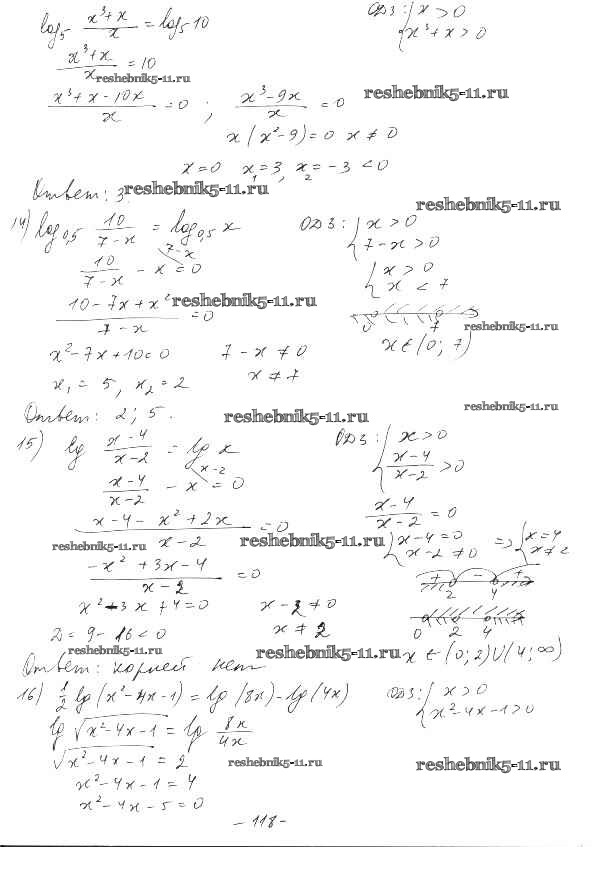 log₅ (x³+x)/x = log₅ 10   ОДЗ: { x > 0
{ x³+x > 0
(x³+x)/x = 10
reshebnik5-11.ru
(x³+x-10x)/x = 0 ; (x³-9x)/x = 0   reshebnik5-11.ru
x(x²-9)=0  x ≠ 0
x=0  x₁=3, x₂=-3 <0
Ответ: 3. reshebnik5-11.ru
reshebnik5-11.ru
14) log₀,₅ 10/(7-x) = log₀,₅ x   ОДЗ: { x > 0
{ 7-x > 0
10/(7-x) - x = 0   7-x   { x > 0
{ x < 7
(10-7x+x²)/(7-x) = 0   reshebnik5-11.ru
0   7   reshebnik5-11.ru
x²-7x+10=0   7-x ≠ 0   x ∈ (0; 7)
x₁ = 5, x₂ = 2   x ≠ 7
Ответ: 2; 5.   reshebnik5-11.ru   reshebnik5-11.ru
15) lg (x-4)/(x-2) = lg x   ОДЗ: { x > 0
{ (x-4)/(x-2) > 0
(x-4)/(x-2) - x = 0   x-2
(x-4-x²+2x)/(x-2) = 0   (x-4)/(x-2) = 0
reshebnik5-11.ru   reshebnik5-11.ru   { x-4=0 => { x=4
{ x-2≠0   { x≠2
(-x²+3x-4)/(x-2) = 0   + - +
2   4
x²-3x+4=0   x-2 ≠ 0
D = 9-16<0   x ≠ 2   0   2   4
reshebnik5-11.ru   reshebnik5-11.ru   x ∈ (0;2)∪(4;∞)
Ответ: корней нет
16) 1/2 lg(x²-4x-1) = lg(8x)-lg(4x)   ОДЗ: { x > 0
{ x²-4x-1>0
lg √(x²-4x-1) = lg 8x/4x
√(x²-4x-1) = 2   reshebnik5-11.ru   reshebnik5-11.ru
x²-4x-1=4
x²-4x-5=0
-118-